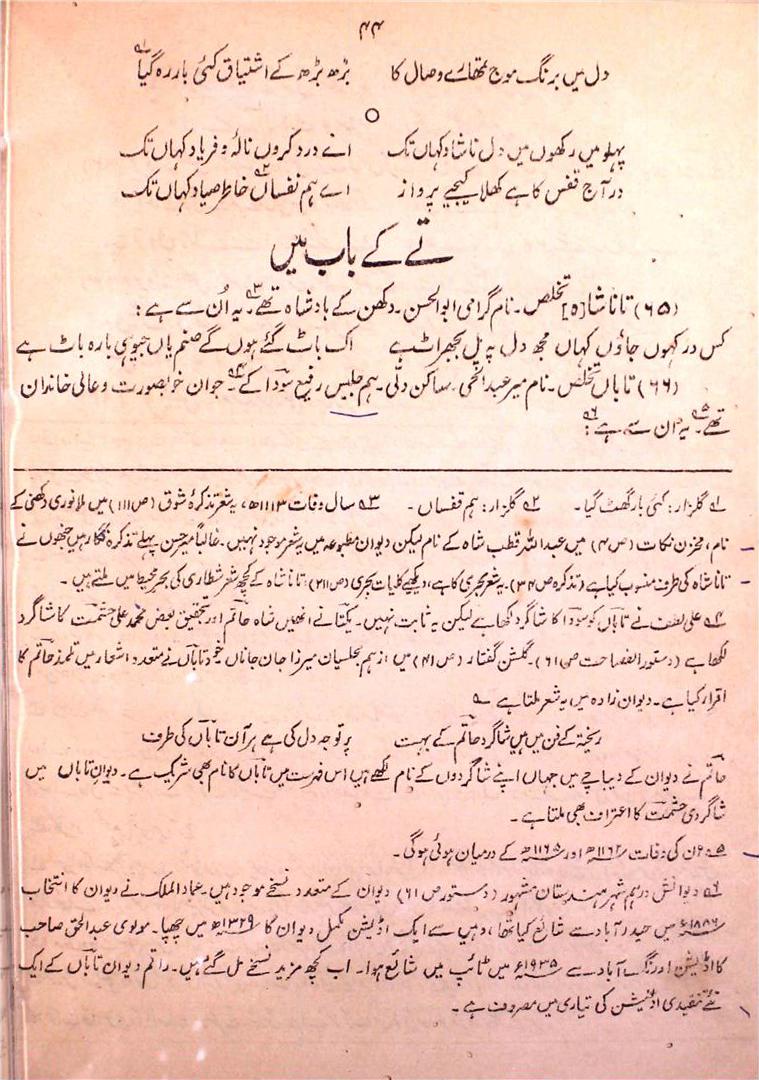 ۴۴
دل میں برنگ موج تمھارے وصال کا بڑھ بڑھ کے اشتیاق کئی بار رہ گیا ؎۱
پہلو میں رکھوں میں دل ناشاد کہاں تک اے درد کروں نالۂ و فریاد کہاں تک
در آج قفس کا ہے کھلا کیجیے پرواز اے ہم نفساں ؎۲ خاطر صیاد کہاں تک
تے کے باب میں
(۶۵) تانا شا[ہ] تخلص۔ نام گرامی ابوالحسن۔ دکھن کے بادشاہ تھے ؎۳۔ یہ اُن سے ہے:
کس در کہوں جاؤں کہاں مجھ دل پہ پل بچھراٹ ہے اک باٹ گئے ہوں گے صنم یاں جیو ہی بارہ باٹ ہے
(۶۶) تاباں تخلص۔ نام میر عبدالحئی۔ ساکن دلّی۔ ہم جلیس رفیع سودا کے ؎۴۔ جوان خوبصورت و عالی خاندان
تھے ؎۵۔ یہ ان سے ہے ؎۶:
؎۱ گلزار: کئی بار گھٹ گیا۔ ؎۲ گلزار: ہم قفساں۔ ؎۳ سال وفات ۱۱۱۳ھ، یہ شعر تذکرۂ شوق (ص ۱۱۱) میں ملا نوری دکھنی کے
نام، مخزن نکات (ص ۴) میں عبداللہ قطب شاہ کے نام لیکن دیوان مطبوعہ میں یہ شعر موجود نہیں۔ غالباً میر حسن پہلے تذکرہ نگار ہیں جنھوں نے
تانا شاہ کی طرف منسوب کیا ہے (تذکرہ ص ۳۴)۔ یہ شعر بحری کا ہے، دیکھیے کلیات بحری (ص ۲۱۱) تانا شاہ کے کچھ شعر شطاری کی بحر محیط میں ملتے ہیں۔
؎۴ علی لطف نے تاباں کو سودا کا شاگرد لکھا ہے لیکن یہ ثابت نہیں۔ یکتا نے انھیں شاہ حاتم اور بتحقیق بعض محمد علی حشمت کا شاگرد
لکھا ہے (دستور الفصاحت ص ۶۱)۔ گلشن گفتار (ص ۴۱) میں: از ہم مجلسیان میرزا جان جاناں خود تاباں نے متعدد اشعار میں تلمذ حاتم کا
اقرار کیا ہے۔ دیوان زادہ میں یہ شعر ملتا ہے ؎
ریختہ کے فن میں ہیں شاگرد حاتم کے بہت پر توجہ دل کی ہے ہر آن تاباں کی طرف
حاتم نے دیوان کے دیباچے میں جہاں اپنے شاگردوں کے نام لکھے ہیں اس فہرست میں تاباں کا نام بھی شریک ہے۔ دیوان تاباں میں
شاگردی حشمت کا اعتراف بھی ملتا ہے۔
؎۵ ان کی وفات ۱۱۶۲ھ اور ۱۱۶۵ھ کے درمیان ہوئی ہوگی۔
؎۶ دیوانش در ہمہ شہر ہندستان مشہور (دستور ص ۶۱) دیوان کے متعدد نسخے موجود ہیں۔ عماد الملک نے دیوان کا انتخاب
۱۸۸۶ء میں حیدرآباد سے شائع کیا تھا، وہیں سے ایک اڈیشن مکمل دیوان کا ۱۳۲۹ھ میں چھپا۔ مولوی عبدالحق صاحب
کا اڈیشن اورنگ آباد سے ۱۹۳۵ء میں ٹائپ میں شائع ہوا۔ اب کچھ مزید نسخے مل گئے ہیں۔ راقم دیوان تاباں کے ایک
نئے تنقیدی اڈیشن کی تیاری میں مصروف ہے۔